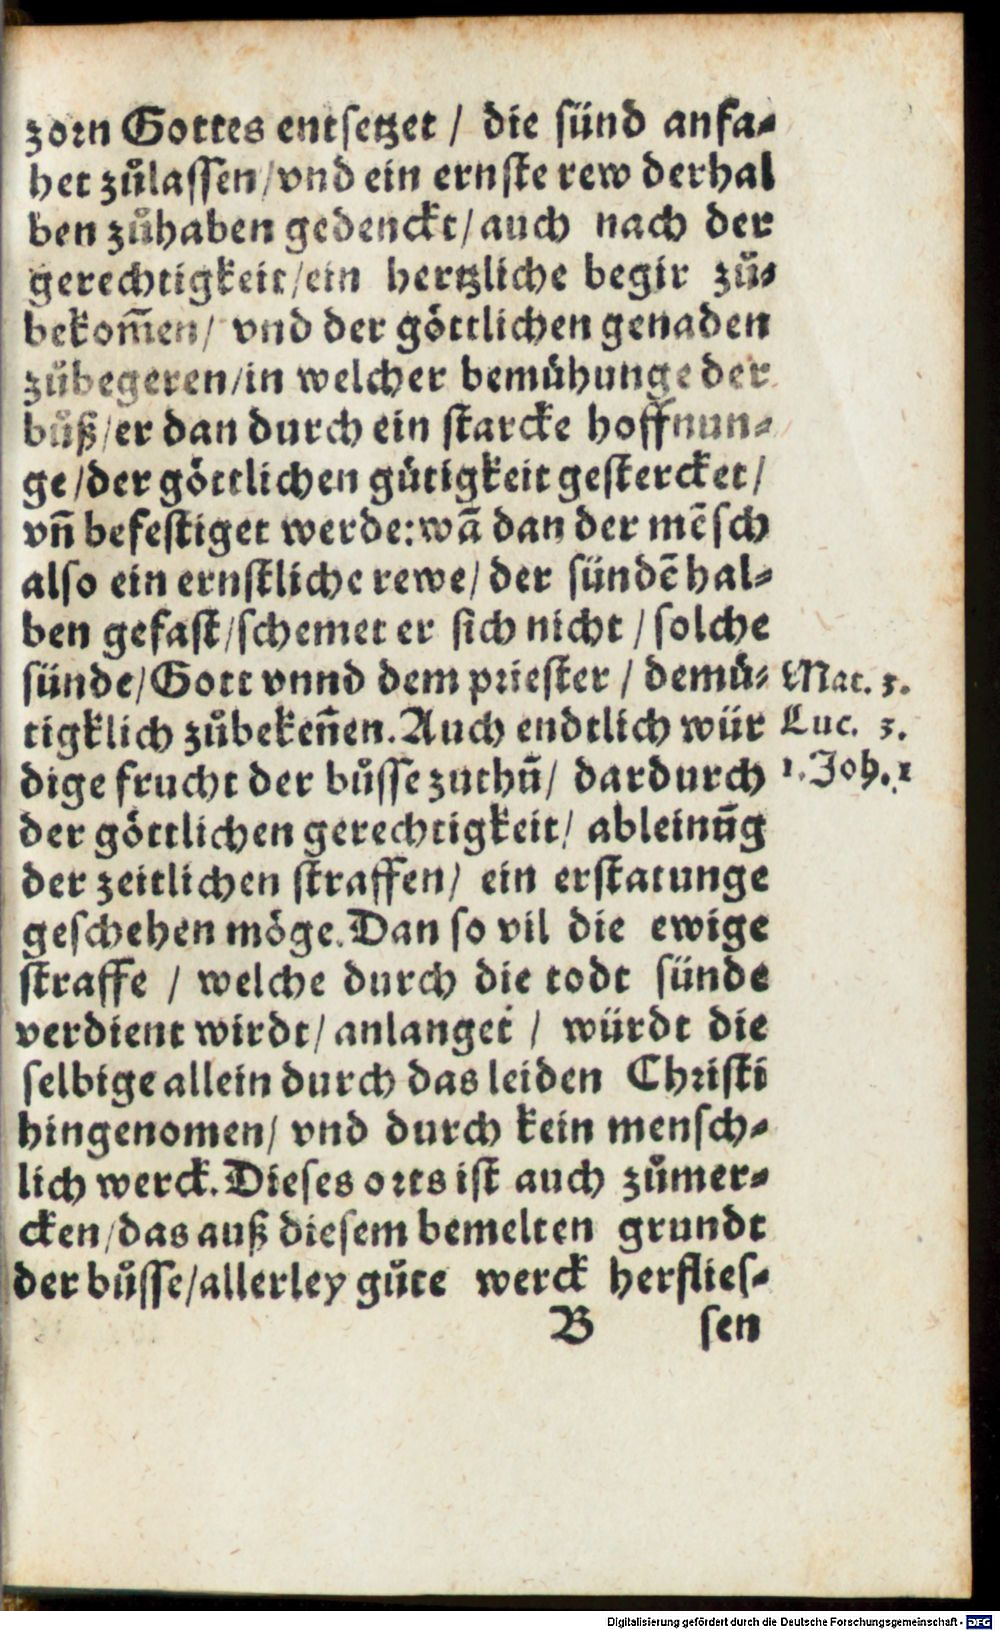 zorn Gottes entsetzet / die sünd anfa-
het zůlassen/vnd ein ernste rew derhal
ben zůhaben gedenckt/auch nach der
gerechtigkeit/ein hertzliche begir zů-
bekom̃en/ vnd der göttlichen genaden
zůbegeren/in welcher bemühunge der
bůß/er dan durch ein starcke hoffnun-
ge/der göttlichen gütigkeit gestercket/
vñ befestiget werde:wã dan der mẽsch
also ein ernstliche rewe/ der sündẽ hal-
ben gefast/schemet er sich nicht / solche
sünde/Gott vnnd dem priester / demü-
tigklich zůbekeñen. Auch endtlich wür
dige frucht der bůsse zuthũ/ dardurch
der göttlichen gerechtigkeit/ ableinũg
der zeitlichen straffen/ ein erstatunge
geschehen möge. Dan so vil die ewige
straffe / welche durch die todt sünde
verdient wirdt/ anlanget / würdt die
selbige allein durch das leiden Christi
hingenomen/ vnd durch kein mensch-
lich werck. Dieses orts ist auch zůmer-
cken/das auß diesem bemelten grundt
der bůsse/allerley gůte werck herflies-
B sen
Mat. 3.
Luc. 3.
1. Joh. 1
Digitalisierung gefördert durch die Deutsche Forschungsgemeinschaft - DFG